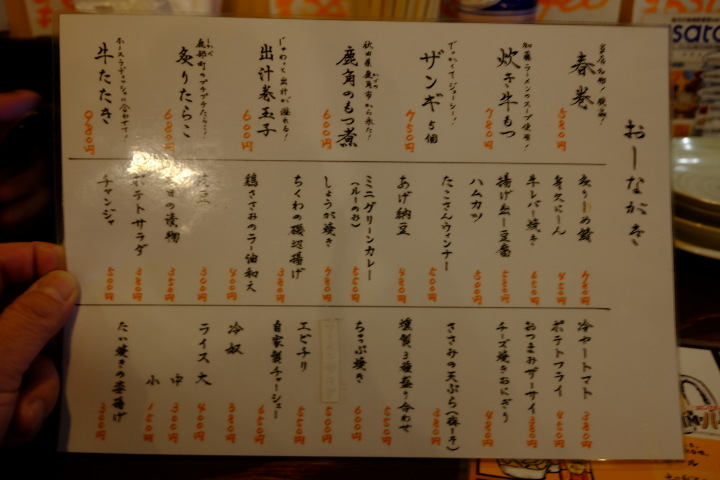 おーながき
当店名物!
春巻
580円
炊き牛もつ
780円
でっかくてジューシー!
ザンギ 5個
750円
秋田県鹿角市から来た!
鹿角のもつ煮
600円
じゅわっと出汁が溢れる!
出汁巻玉子
600円
鹿部町のプチプチたらこ!
炙りたらこ
680円
ホースラディッシュに合わせて!
牛たたき
980円
炙りしめ鯖
780円
身欠にしん
450円
牛レバー焼き
650円
揚げ出し豆腐
580円
ハムカツ
500円
たこさんウィンナー
500円
あげ納豆
480円
ミニグリーンカレー
(ルーのみ)
550円
しょうが焼き
780円
ちくわの磯辺揚げ
380円
鶏ささみのラー油和え
400円
300円
の漬物
350円
ポテトサラダ
380円
チャンジャ
500円
冷やートマト
380円
ポテトフライ
450円
おつまみザーサイ
380円
チーズ焼きおにぎり
480円
ささみの天ぷら(梅しそ)
380円
燻製3種盛り合わせ
550円
ちゃっぷ焼き
600円
500円
エビチリ
550円
自家製チャーシュー
650円
冷奴
380円
ライス 大
400円
中
300円
小
150円
たい焼きの姿揚げ
300円